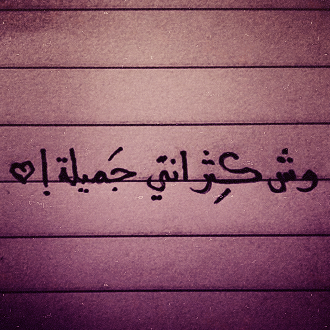 وش كِثر انتي جَميلة !♡